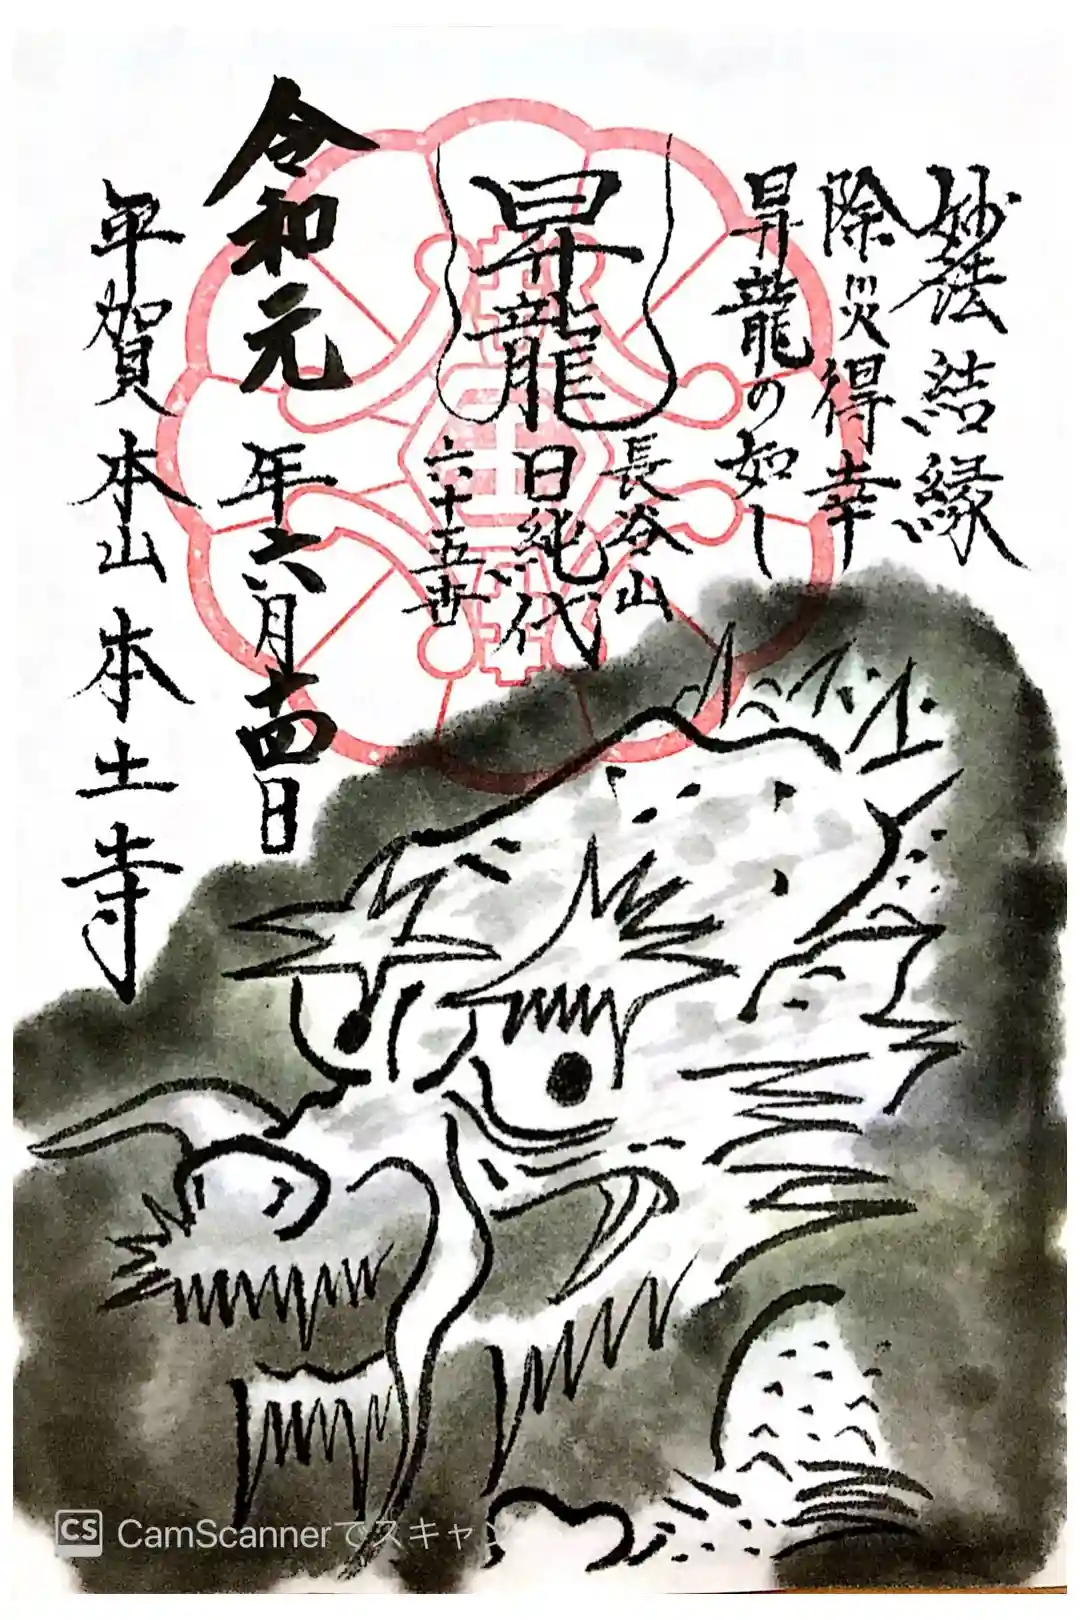 妙法結縁
除災得幸
昇龍の如し
昇龍
長谷山
日純代
六十五世
令和元
年六月十四日
平賀本山本土寺
CS CamScannerでスキャン